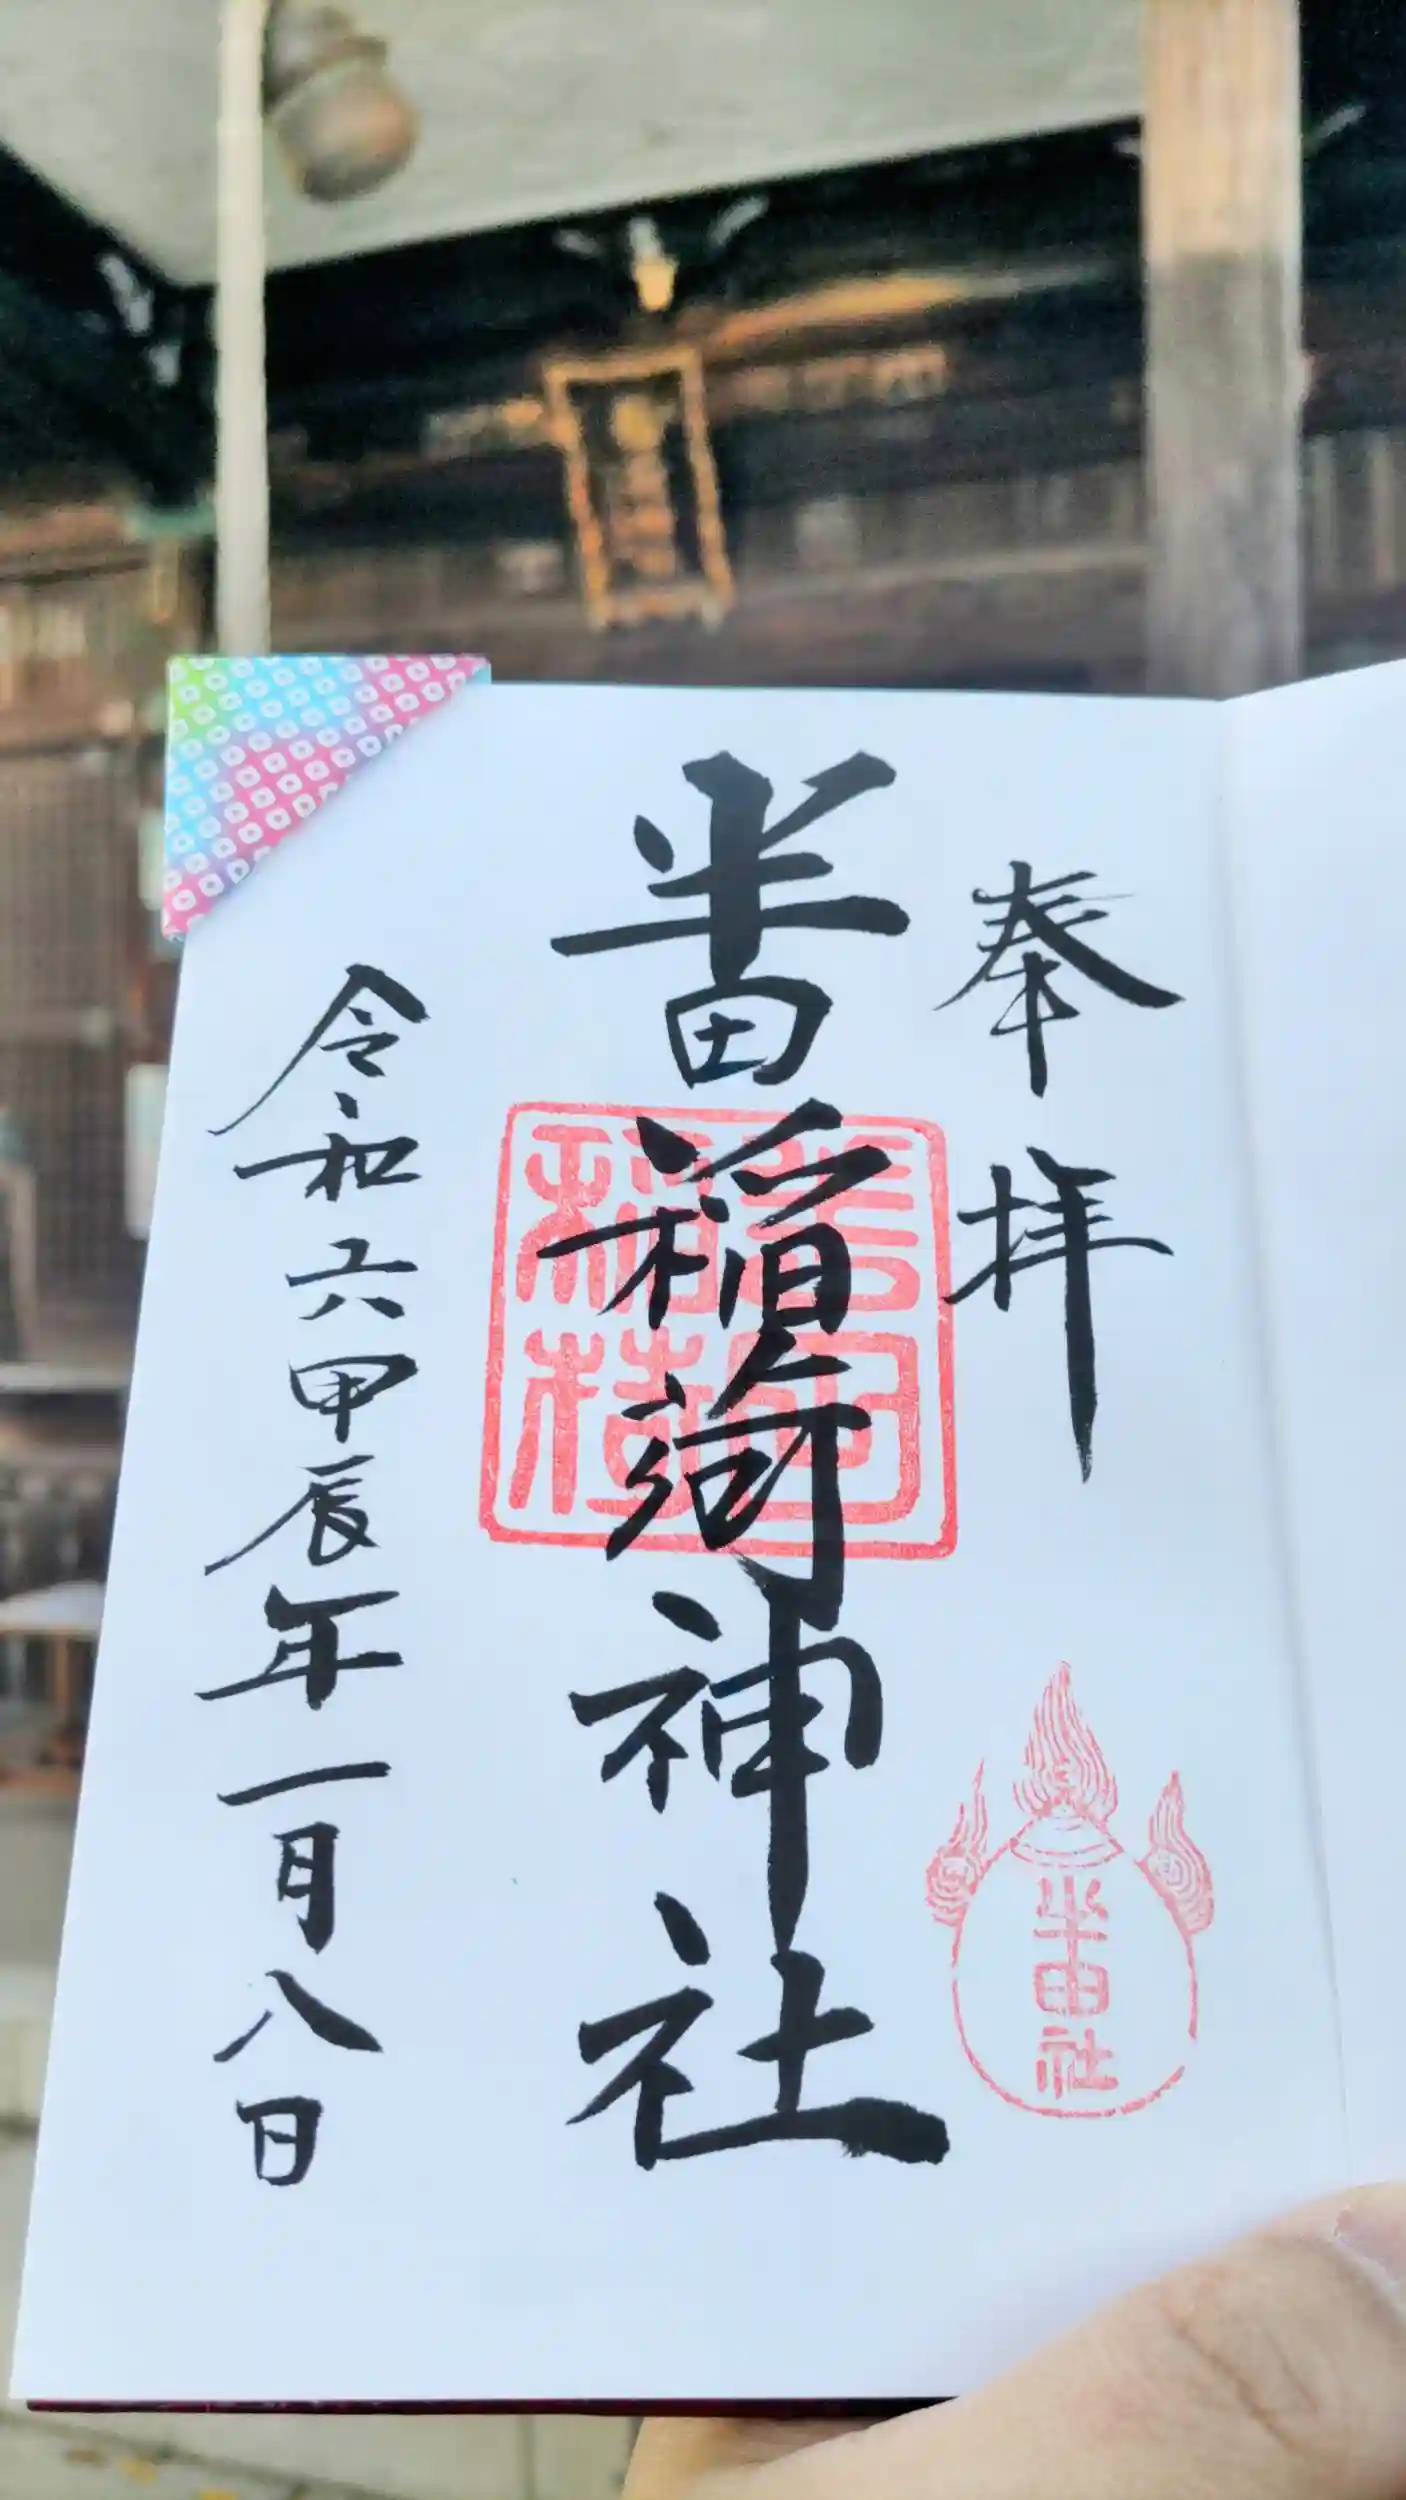 奉拝
半田稲荷神社
令和六甲辰年一月八日
半田稲荷
半田社